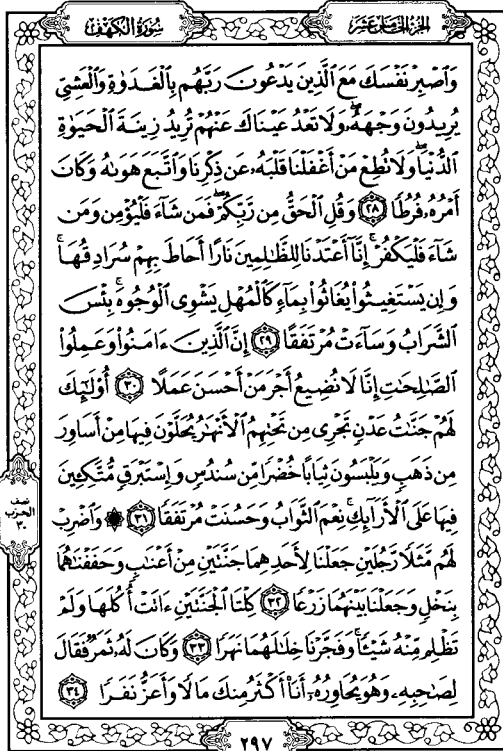 سُورَةُ الكَهْفِ
الجُزْءُ الخَامِسَ عَشَرَ
وَٱصۡبِرۡ نَفۡسَكَ مَعَ ٱلَّذِينَ يَدۡعُونَ رَبَّهُم بِٱلۡغَدَوٰةِ وَٱلۡعَشِيِّ
يُرِيدُونَ وَجۡهَهُۥۖ وَلَا تَعۡدُ عَيۡنَاكَ عَنۡهُمۡ تُرِيدُ زِينَةَ ٱلۡحَيَوٰةِ
ٱلدُّنۡيَاۖ وَلَا تُطِعۡ مَنۡ أَغۡفَلۡنَا قَلۡبَهُۥ عَن ذِكۡرِنَا وَٱتَّبَعَ هَوَىٰهُ وَكَانَ
أَمۡرُهُۥ فُرُطٗا ٢٨ وَقُلِ ٱلۡحَقُّ مِن رَّبِّكُمۡۖ فَمَن شَآءَ فَلۡيُؤۡمِن وَمَن
شَآءَ فَلۡيَكۡفُرۡۚ إِنَّآ أَعۡتَدۡنَا لِلظَّٰلِمِينَ نَارًا أَحَاطَ بِهِمۡ سُرَادِقُهَاۚ
وَإِن يَسۡتَغِيثُواْ يُغَاثُواْ بِمَآءٖ كَٱلۡمُهۡلِ يَشۡوِي ٱلۡوُجُوهَۚ بِئۡسَ
ٱلشَّرَابُ وَسَآءَتۡ مُرۡتَفَقًا ٢٩ إِنَّ ٱلَّذِينَ ءَامَنُواْ وَعَمِلُواْ
ٱلصَّٰلِحَٰتِ إِنَّا لَا نُضِيعُ أَجۡرَ مَنۡ أَحۡسَنَ عَمَلًا ٣٠ أُوْلَٰٓئِكَ
لَهُمۡ جَنَّٰتُ عَدۡنٖ تَجۡرِي مِن تَحۡتِهِمُ ٱلۡأَنۡهَٰرُ يُحَلَّوۡنَ فِيهَا مِنۡ أَسَاوِرَ
مِن ذَهَبٖ وَيَلۡبَسُونَ ثِيَابًا خُضۡرٗا مِّن سُندُسٖ وَإِسۡتَبۡرَقٖ مُّتَّكِـِٔينَ
فِيهَا عَلَى ٱلۡأَرَآئِكِۚ نِعۡمَ ٱلثَّوَابُ وَحَسُنَتۡ مُرۡتَفَقٗا ٣١ ۞ وَٱضۡرِبۡ
لَهُم مَّثَلٗا رَّجُلَيۡنِ جَعَلۡنَا لِأَحَدِهِمَا جَنَّتَيۡنِ مِنۡ أَعۡنَٰبٖ وَحَفَفۡنَٰهُمَا
بِنَخۡلٖ وَجَعَلۡنَا بَيۡنَهُمَا زَرۡعٗا ٣٢ كِلۡتَا ٱلۡجَنَّتَيۡنِ ءَاتَتۡ أُكُلَهَا وَلَمۡ
تَظۡلِم مِّنۡهُ شَيۡـٔٗاۚ وَفَجَّرۡنَا خِلَٰلَهُمَا نَهَرٗا ٣٣ وَكَانَ لَهُۥ ثَمَرٞ فَقَالَ
لِصَٰحِبِهِۦ وَهُوَ يُحَاوِرُهُۥٓ أَنَا۠ أَكۡثَرُ مِنكَ مَالٗا وَأَعَزُّ نَفَرٗا ٣٤
نصف
الحزب
٣٠
٢٩٧